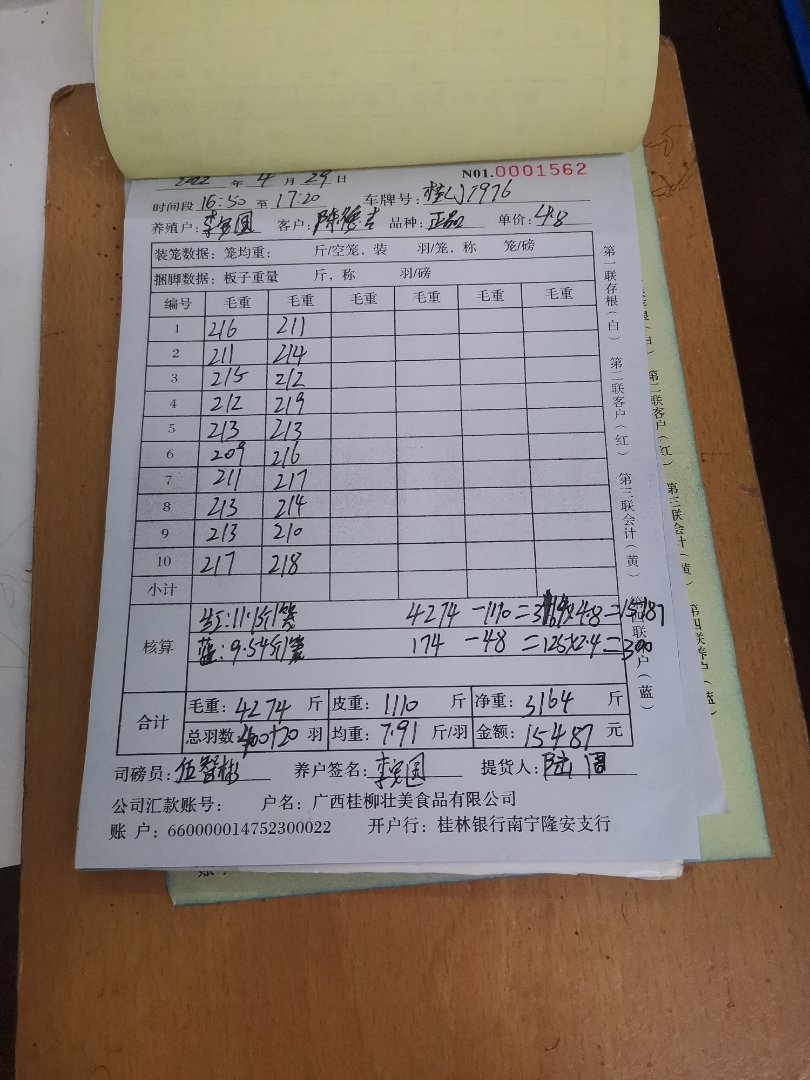 2022 年 4 月 29 日 N01.0001562
时间段 16:50 至 17:20 车牌号: 1976
养殖户: 李 国 客户: 陈 吉 品种: 正品 单价: 4.8
装笼数据: 笼均重: 斤/空笼, 装 羽/笼, 称 笼/磅
捆脚数据: 板子重量 斤, 称 羽/磅
编号 毛重 毛重 毛重 毛重 毛重 毛重
1 216 211
2 211 214
3 215 212
4 212 219
5 213 213
6 209 216
7 211 217
8 213 214
9 213 210
10 217 218
小计
核算
红:11.1斤/笼 4274 -1110= ×4.8=15187
蓝:9.54斤/笼 174 -48 =125×2.4=300
合计
毛重: 4274 斤 皮重: 1110 斤 净重: 3164 斤
总羽数: 400+20 羽 均重: 7.91 斤/羽 金额: 15487 元
司磅员: 伍智彬 养户签名: 李 国 提货人: 陆
公司汇款账号: 户名: 广西桂柳壮美食品有限公司
账 户: 660000014752300022 开户行: 桂林银行南宁隆安支行
第一联存根(白) 第二联客户(红) 第三联会计(黄) 第四联养户(蓝)
第二联客户(红) 第三联会计(黄) 第四联养户(蓝)